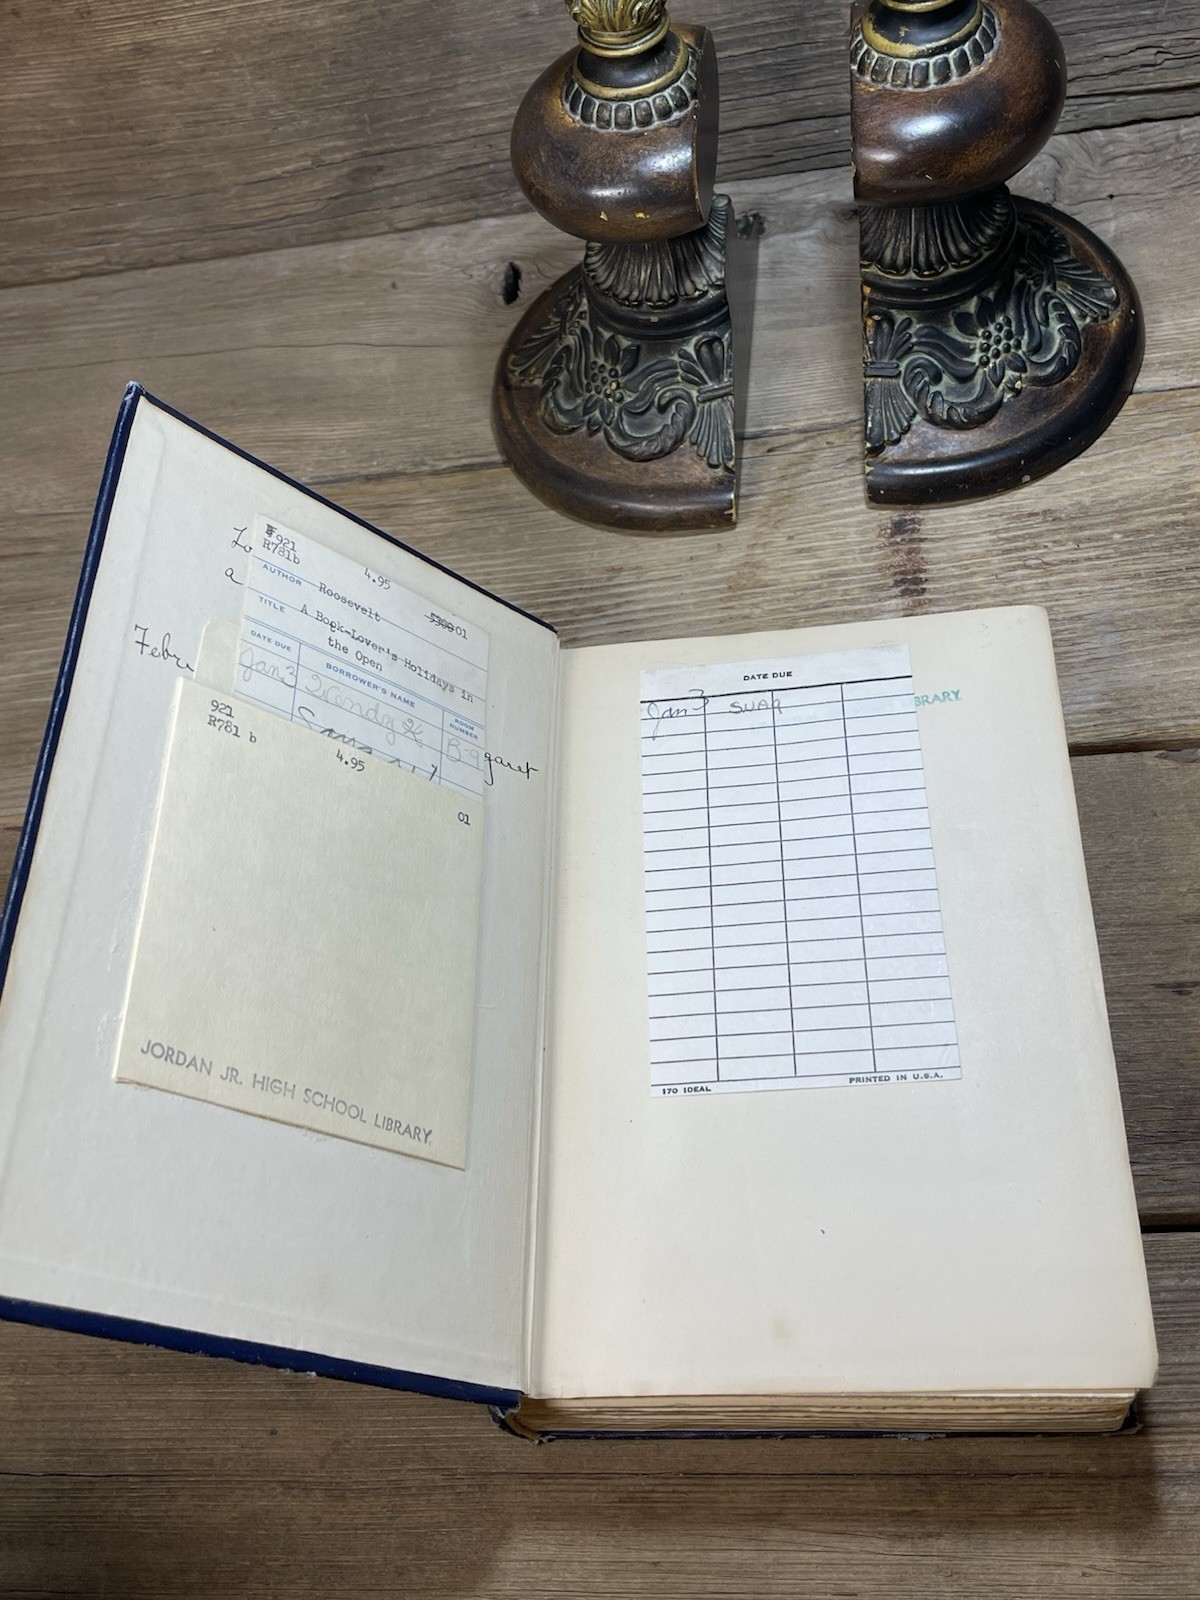 921
R781b
4.95
AUTHOR Roosevelt
01
TITLE A Book-Lover's Holidays in
the Open
DATE DUE BORROWER'S NAME ROOM NUMBER
Jan 3 Wendy K B-9
a
Febru
garet
921
R781 b
4.95
01
JORDAN JR. HIGH SCHOOL LIBRARY
DATE DUE
Jan 3
BRARY
170 IDEAL PRINTED IN U.S.A.